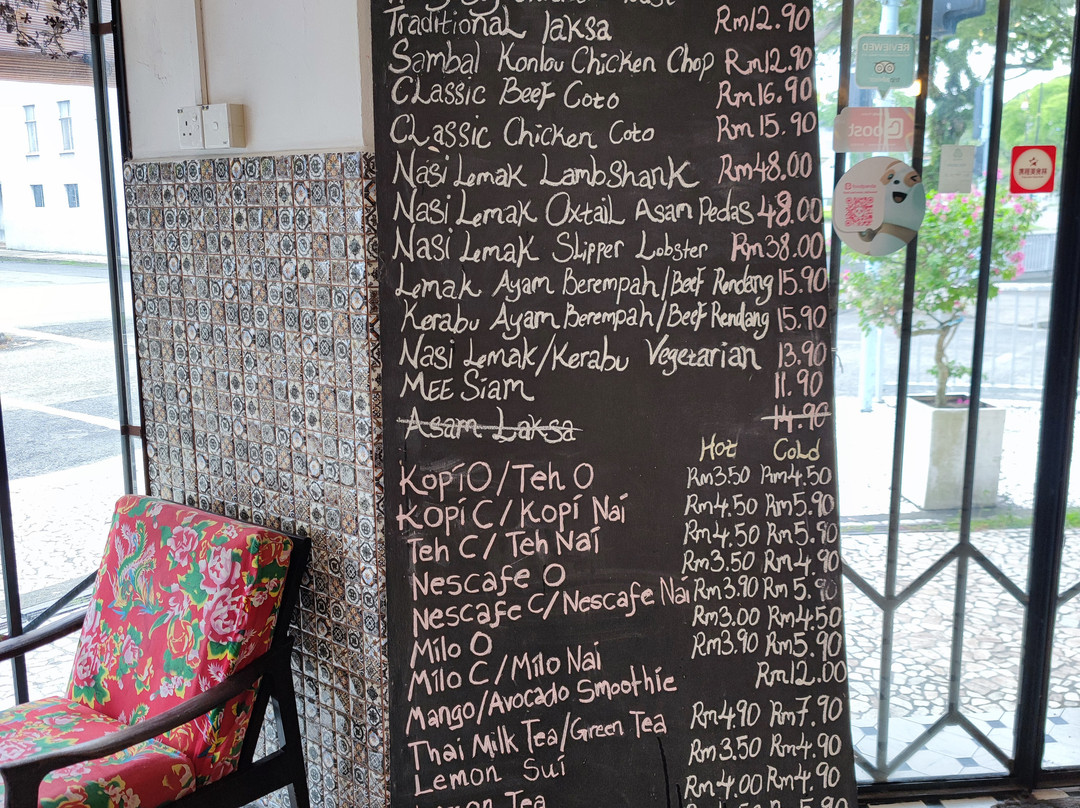 Traditional laksa Rm12.90
Sambal Konlou Chicken Chop Rm12.90
Classic Beef Coto Rm16.90
Classic Chicken Coto Rm15.90
Nasi Lemak LambShank Rm48.00
Nasi Lemak Oxtail Asam Pedas 48.00
Nasi Lemak Slipper Lobster Rm38.00
Lemak Ayam Berempah/Beef Rendang 15.90
Kerabu Ayam Berempah/Beef Rendang 15.90
Nasi Lemak/Kerabu Vegetarian 13.90
MEE Siam 11.90
Asam Laksa 14.90
Hot Cold
Kopi O/Teh O Rm3.50 Rm4.50
Kopi C/Kopi Nai Rm4.50 Rm5.90
Teh C/Teh Nai Rm4.50 Rm5.90
Nescafe O Rm3.50 Rm4.90
Nescafe C/Nescafe Nai Rm3.90 Rm5.90
Milo O Rm3.00 Rm4.50
Milo C/Milo Nai Rm3.90 Rm5.90
Mango/Avocado Smoothie Rm12.00
Thai Milk Tea/Green Tea Rm4.90 Rm7.90
Lemon Sui Rm3.50 Rm4.90
Lemon Tea Rm4.00 Rm4.90
REVIEWED
boost
foodpanda